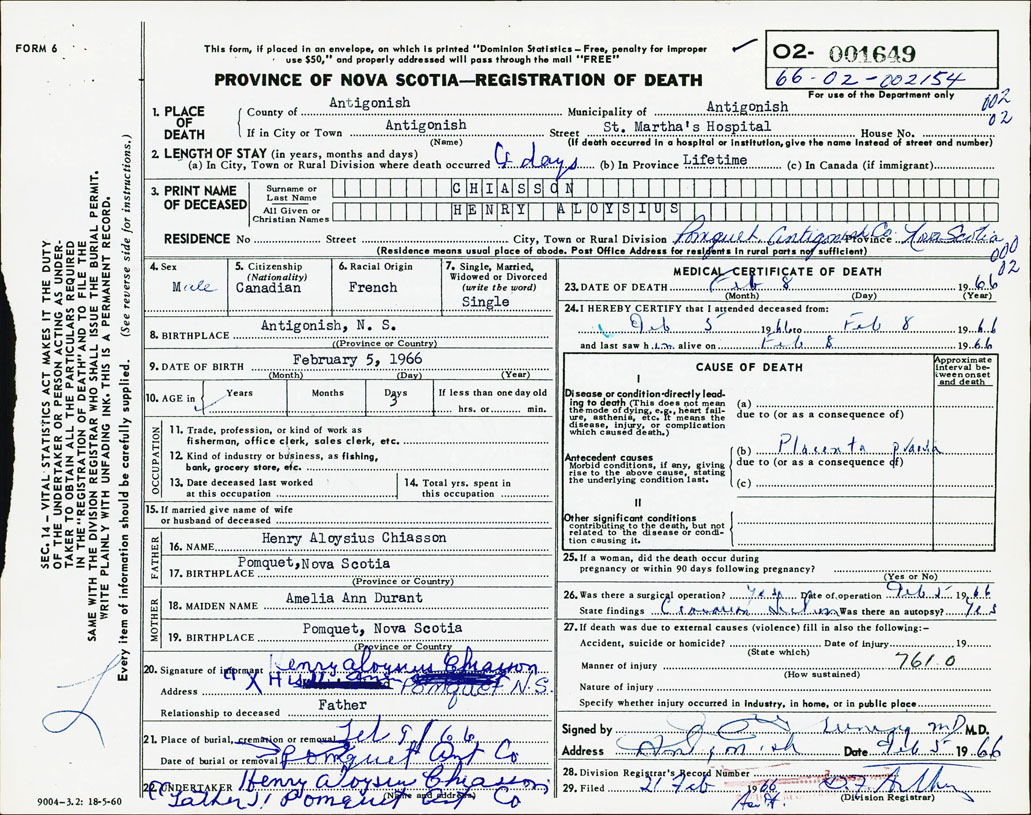 FORM 6
This form, if placed in an envelope, on which is printed "Dominion Statistics – Free, penalty for improper
use $50," and properly addressed will pass through the mail "FREE"
PROVINCE OF NOVA SCOTIA—REGISTRATION OF DEATH
02- 001649
66-02-002154
For use of the Department only
002
02
1. PLACE OF DEATH
County of Antigonish Municipality of Antigonish
If in City or Town Antigonish Street St. Martha's Hospital House No.
(Name) (If death occurred in a hospital or institution, give the name instead of street and number)
2. LENGTH OF STAY (in years, months and days)
(a) In City, Town or Rural Division where death occurred days (b) In Province Lifetime (c) In Canada (if immigrant)
3. PRINT NAME OF DECEASED
Surname or Last Name CHIASSON
All Given or Christian Names HENRY ALOYSIUS
RESIDENCE No Street City, Town or Rural Division Pomquet Antigonish Co Province Nova Scotia
(Residence means usual place of abode. Post Office Address for residents in rural parts not sufficient)
000
02
4. Sex Male
5. Citizenship (Nationality) Canadian
6. Racial Origin French
7. Single, Married, Widowed or Divorced (write the word) Single
8. BIRTHPLACE Antigonish, N. S.
(Province or Country)
9. DATE OF BIRTH February 5, 1966
(Month) (Day) (Year)
10. AGE in Years Months Days 3 If less than one day old
hrs. or min.
OCCUPATION
11. Trade, profession, or kind of work as
fisherman, office clerk, sales clerk, etc.
12. Kind of industry or business, as fishing,
bank, grocery store, etc.
13. Date deceased last worked
at this occupation
14. Total yrs. spent in
this occupation
15. If married give name of wife
or husband of deceased
FATHER
16. NAME Henry Aloysius Chiasson
17. BIRTHPLACE Pomquet,Nova Scotia
(Province or Country)
MOTHER
18. MAIDEN NAME Amelia Ann Durant
19. BIRTHPLACE Pomquet, Nova Scotia
(Province or Country)
20. Signature of informant Henry Aloysius Chiasson
Address Pomquet N.S.
Relationship to deceased Father
21. Place of burial, cremation or removal Feb 9/66
Date of burial or removal Pomquet Ant Co
22. UNDERTAKER Henry Aloysius Chiasson
(Name and address)
(Father) Pomquet Ant Co
9004–3.2: 18-5-60
MEDICAL CERTIFICATE OF DEATH
23. DATE OF DEATH Feb 8 1966
(Month) (Day) (Year)
24. I HEREBY CERTIFY that I attended deceased from:
Feb 5 1966 to Feb 8 1966
and last saw him alive on Feb 8 1966
CAUSE OF DEATH
Approximate interval between onset and death
I
Disease or condition directly leading to death (This does not mean the mode of dying, e.g., heart failure, asthenia, etc. It means the disease, injury, or complication which caused death.)
(a)
due to (or as a consequence of)
Antecedent causes
Morbid conditions, if any, giving rise to the above cause, stating the underlying condition last.
(b) Placenta previa
due to (or as a consequence of)
(c)
II
Other significant conditions
contributing to the death, but not related to the disease or condition causing it.
25. If a woman, did the death occur during
pregnancy or within 90 days following pregnancy?
(Yes or No)
26. Was there a surgical operation? Yes Date of operation Feb 5 1966
State findings Cesarean Section Was there an autopsy? Yes
27. If death was due to external causes (violence) fill in also the following:–
Accident, suicide or homicide? Date of injury 19
(State which)
Manner of injury 761.0
(How sustained)
Nature of injury
Specify whether injury occurred in Industry, in home, or in public place
Signed by M.D.
Address Antigonish Date Feb 5 1966
28. Division Registrar's Record Number
29. Filed 21 Feb 1966
(Division Registrar)
SEC. 14 – VITAL STATISTICS ACT MAKES IT THE DUTY
OF THE UNDERTAKER OR PERSON ACTING AS UNDER-
TAKER TO OBTAIN ALL THE PARTICULARS REQUIRED
IN THE "REGISTRATION OF DEATH" AND TO FILE THE
SAME WITH THE DIVISION REGISTRAR WHO SHALL ISSUE THE BURIAL PERMIT.
WRITE PLAINLY WITH UNFADING INK. THIS IS A PERMANENT RECORD.
Every item of information should be carefully supplied. (See reverse side for instructions.)